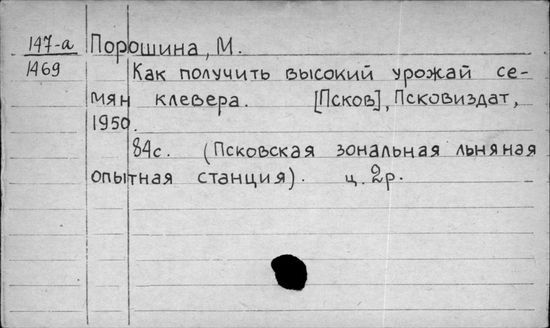 147-а Порошина, М.
1469 Как получить высокий урожай се-
мян клевера. [Псков], Псковиздат,
1950.
84с. (Псковская зональная льняная
опытная станция). ц. 2р.